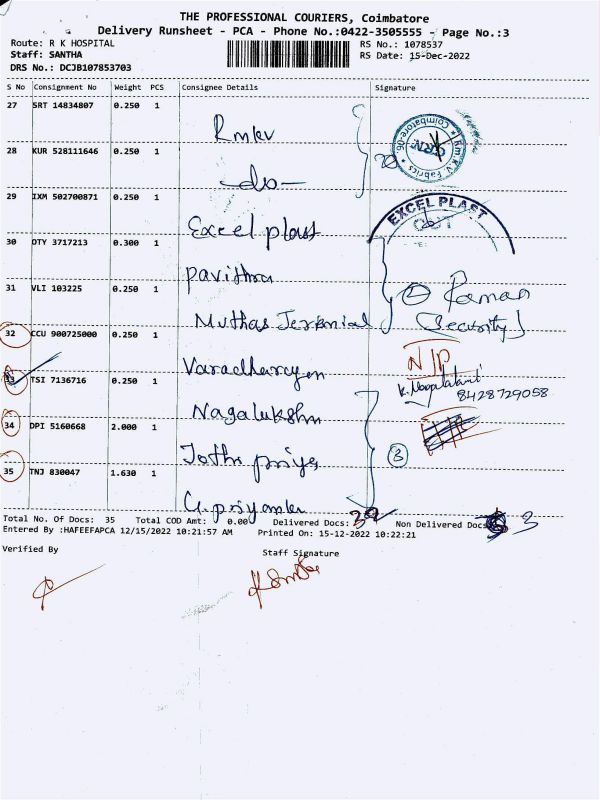 THE PROFESSIONAL COURIERS, Coimbatore
Delivery Runsheet - PCA - Phone No.:0422-3505555 - Page No.:3
Route: R K HOSPITAL
RS No.: 1078537
Staff: SANTHA
RS Date: 15-Dec-2022
DRS No.: DCJB107853703
S No Consignment No Weight PCS Consignee Details Signature
27 SRT 14834807 0.250 1
Rmkv
R.m.K.V. Fabrics * Coimbatore-06. *
28 KUR 528111646 0.250 1
-do-
29 IXM 502700871 0.250 1
EXCEL PLAST
OUT
Excel plast
30 OTY 3717213 0.300 1
Pavithra
31 VLI 103225 0.250 1
2 Raman
Muthas
(Security)
32 CCU 900725000 0.250 1
N/P
33 TSI 7136716 0.250 1
8428729058
34 DPI 5160668 2.000 1
Jothi priya
3
35 TNJ 830047 1.630 1
G.priyanka
Total No. Of Docs: 35 Total COD Amt: 0.00 Delivered Docs: 32 Non Delivered Docs 3
Entered By :HAFEEFAPCA 12/15/2022 10:21:57 AM Printed On: 15-12-2022 10:22:21
Verified By Staff Signature